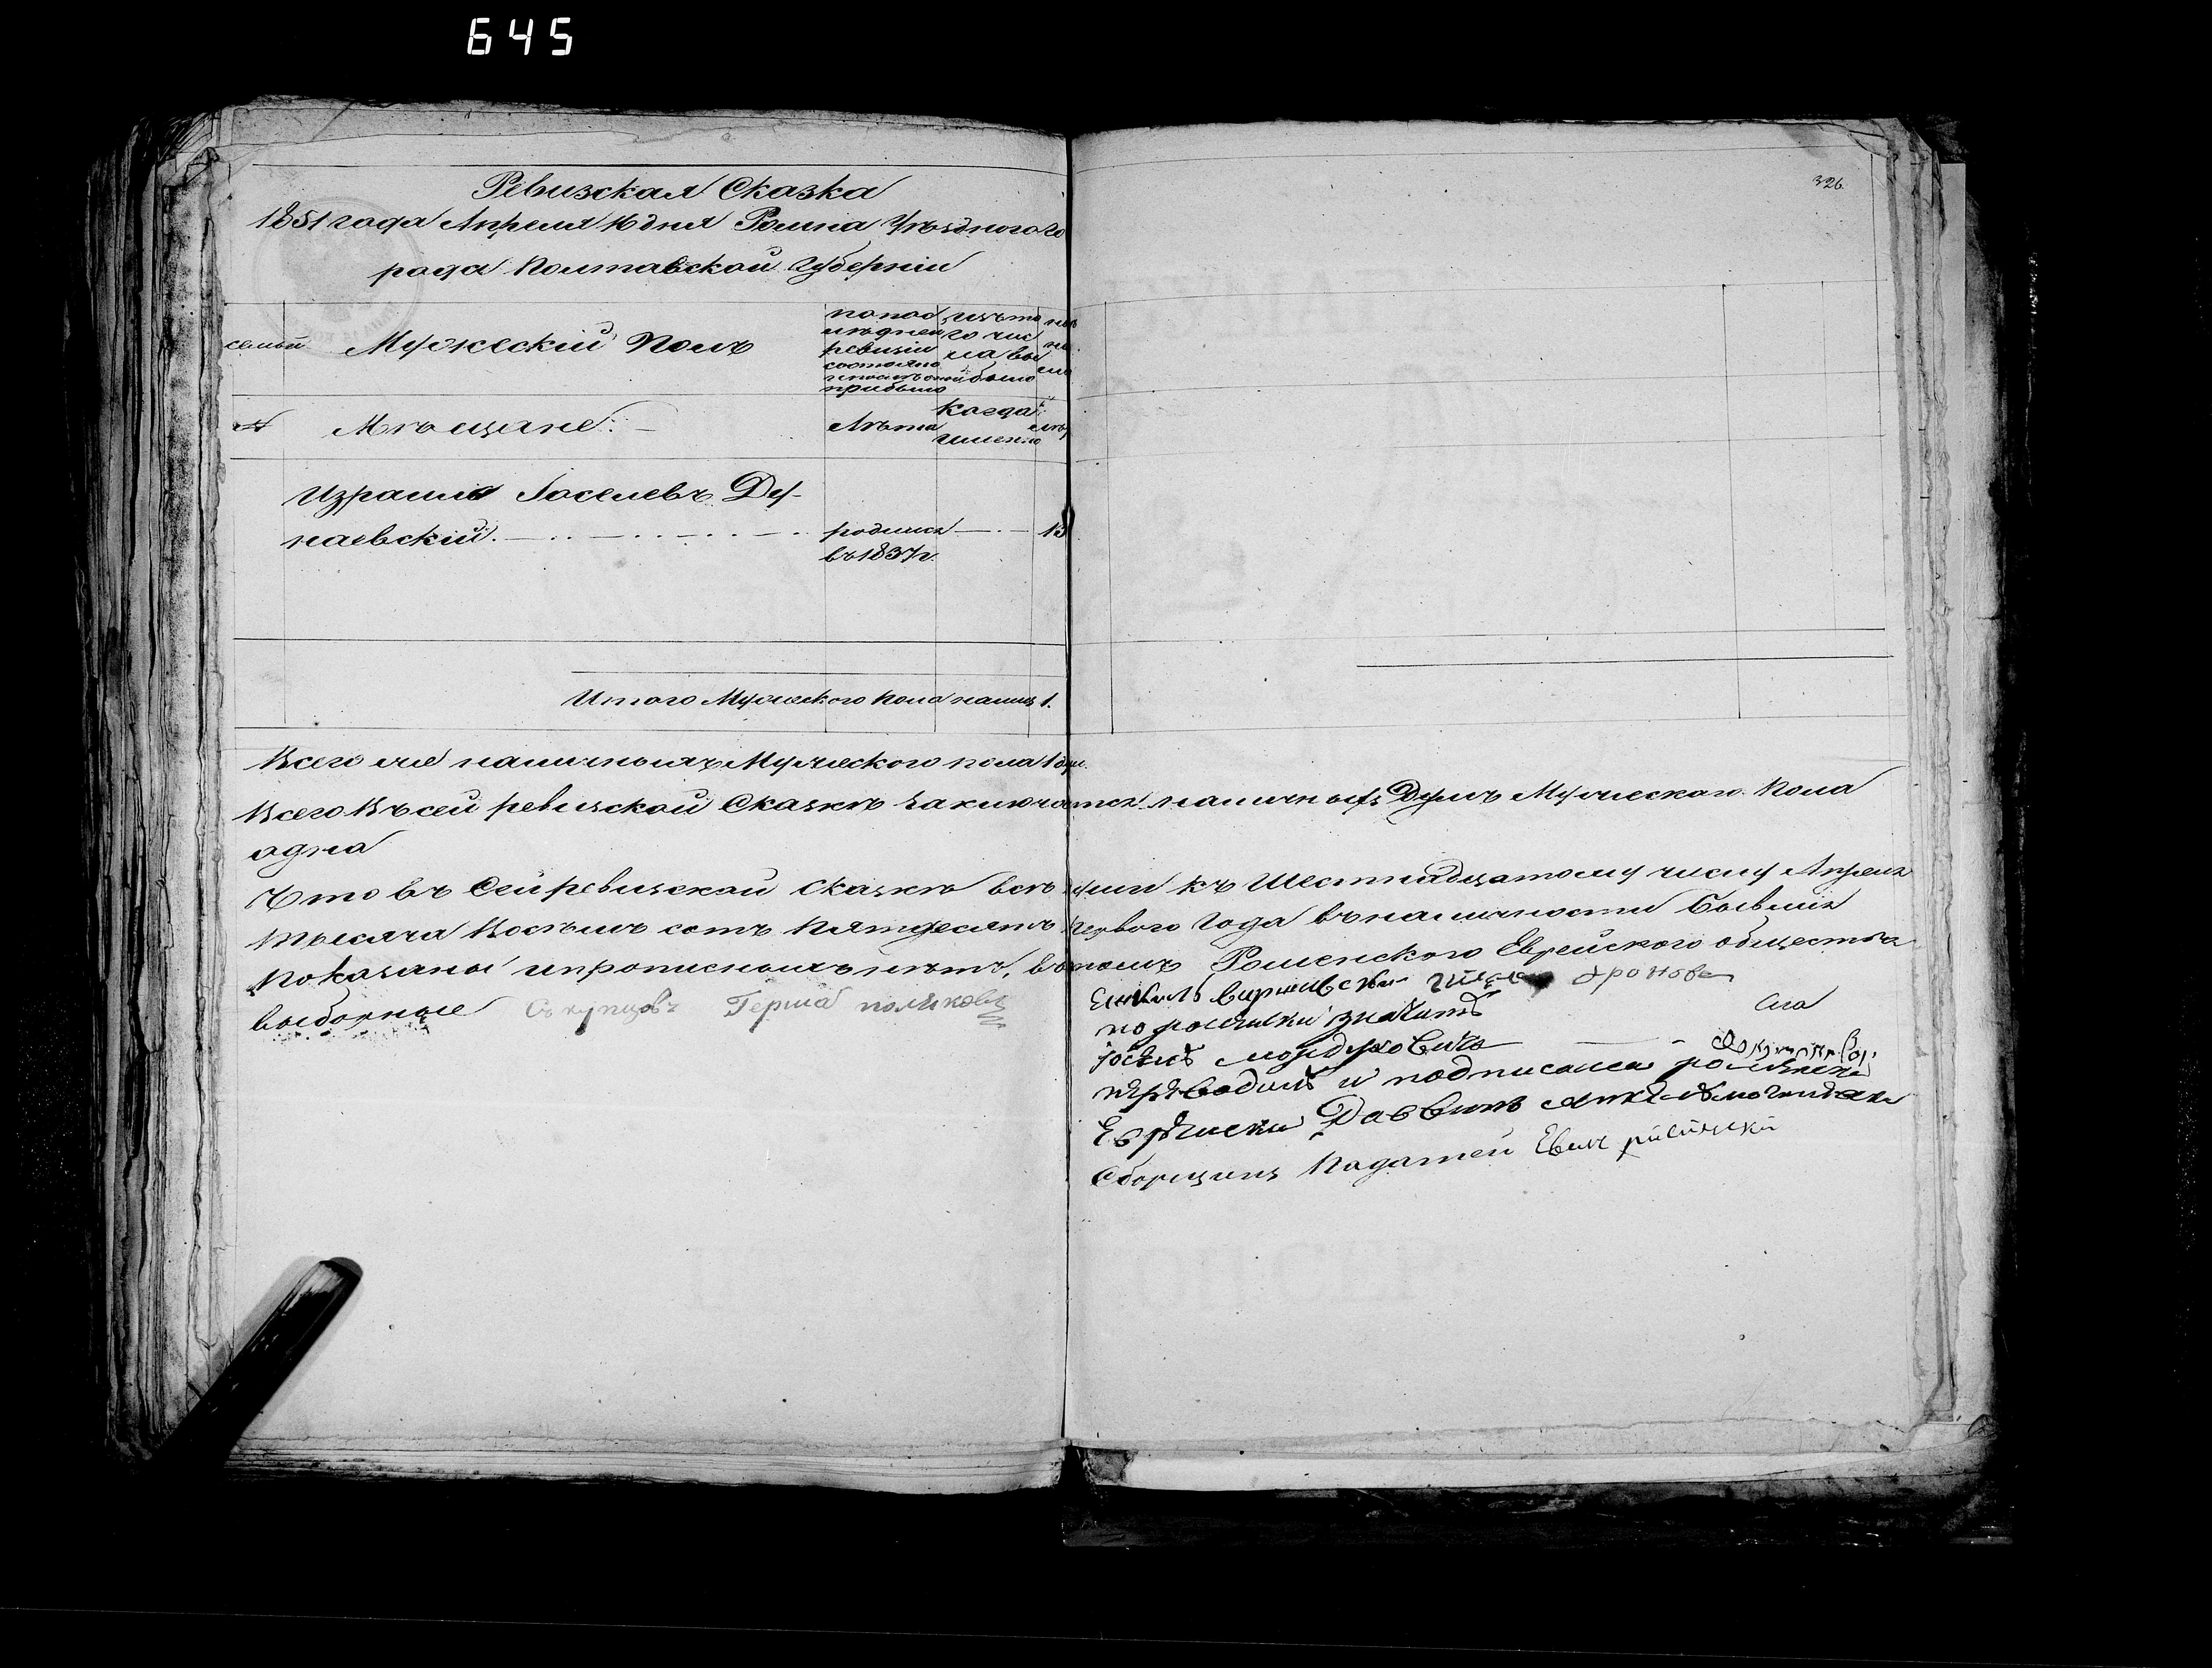 645
326
Ревизская Сказка
1851 года Апреля 16 дня Ромна Уѣзднаго го
рода Полтавской Губерніи
семьи
Мужескій Полъ
по пос
лѣдней
ревизіи
состояло
прибыло
изъ то
го чис
ла вы
было
Мѣщане
Лѣта
Когда
именно
Израиль Іоселевъ Ду-
наевскій
родился
въ 1837 г.
13
Итого Мужеского пола налиц 1.
Всего же наличныхъ Мужеского пола 1 душ.
Всего Въ сей ревизской Сказкѣ заключается наличныхъ Душъ Мужеского Пола
одна
Что въ Сей ревизской Сказкѣ всѣ души къ Шестнадцатому числу Апреля
тысяча Восѣмъ сотъ Пятдесятъ Первого Года въ наличности Бывшия
Показаны и прописныхъ нѣтъ, въ томъ Роменского Еврейского общества
выборные Съ купцовъ Герша поляковъ
значитъ
переводилъ и подписалъ
Еврейски Давыдъ
Сборщикъ Податей